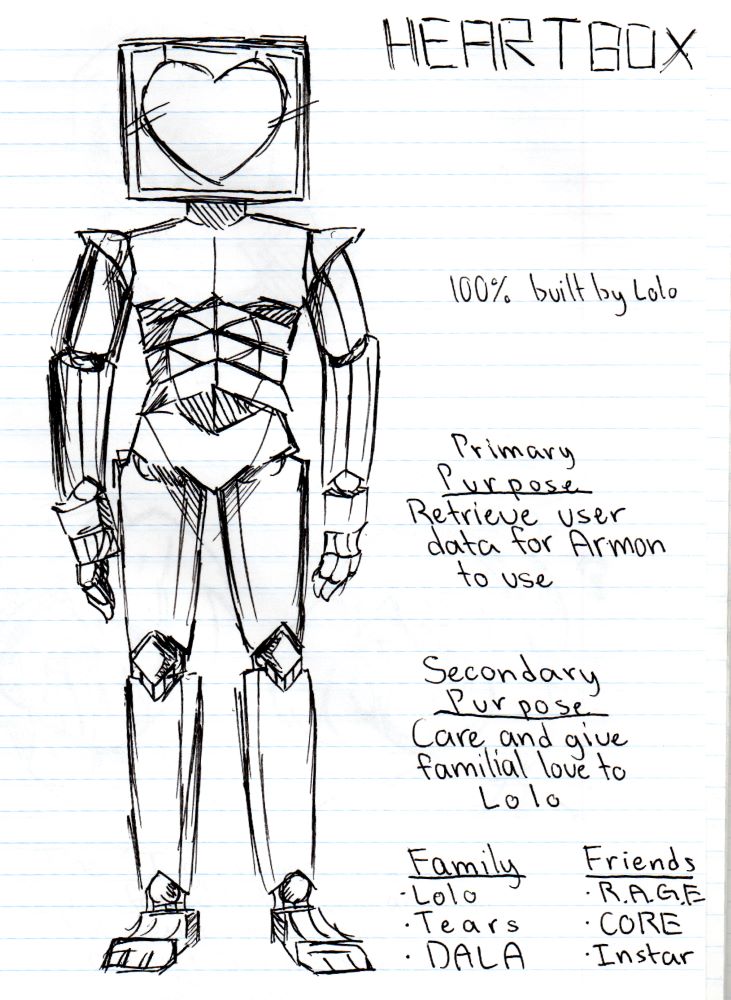 HEARTBOX
100% built by Lolo
Primary
Purpose
Retrieve user
data for Armon
to use
Secondary
Purpose
Care and give
familial love to
Lolo
Family
·Lolo
·Tears
·DALA
Friends
·R.A.G.E
·CORE
·Instar